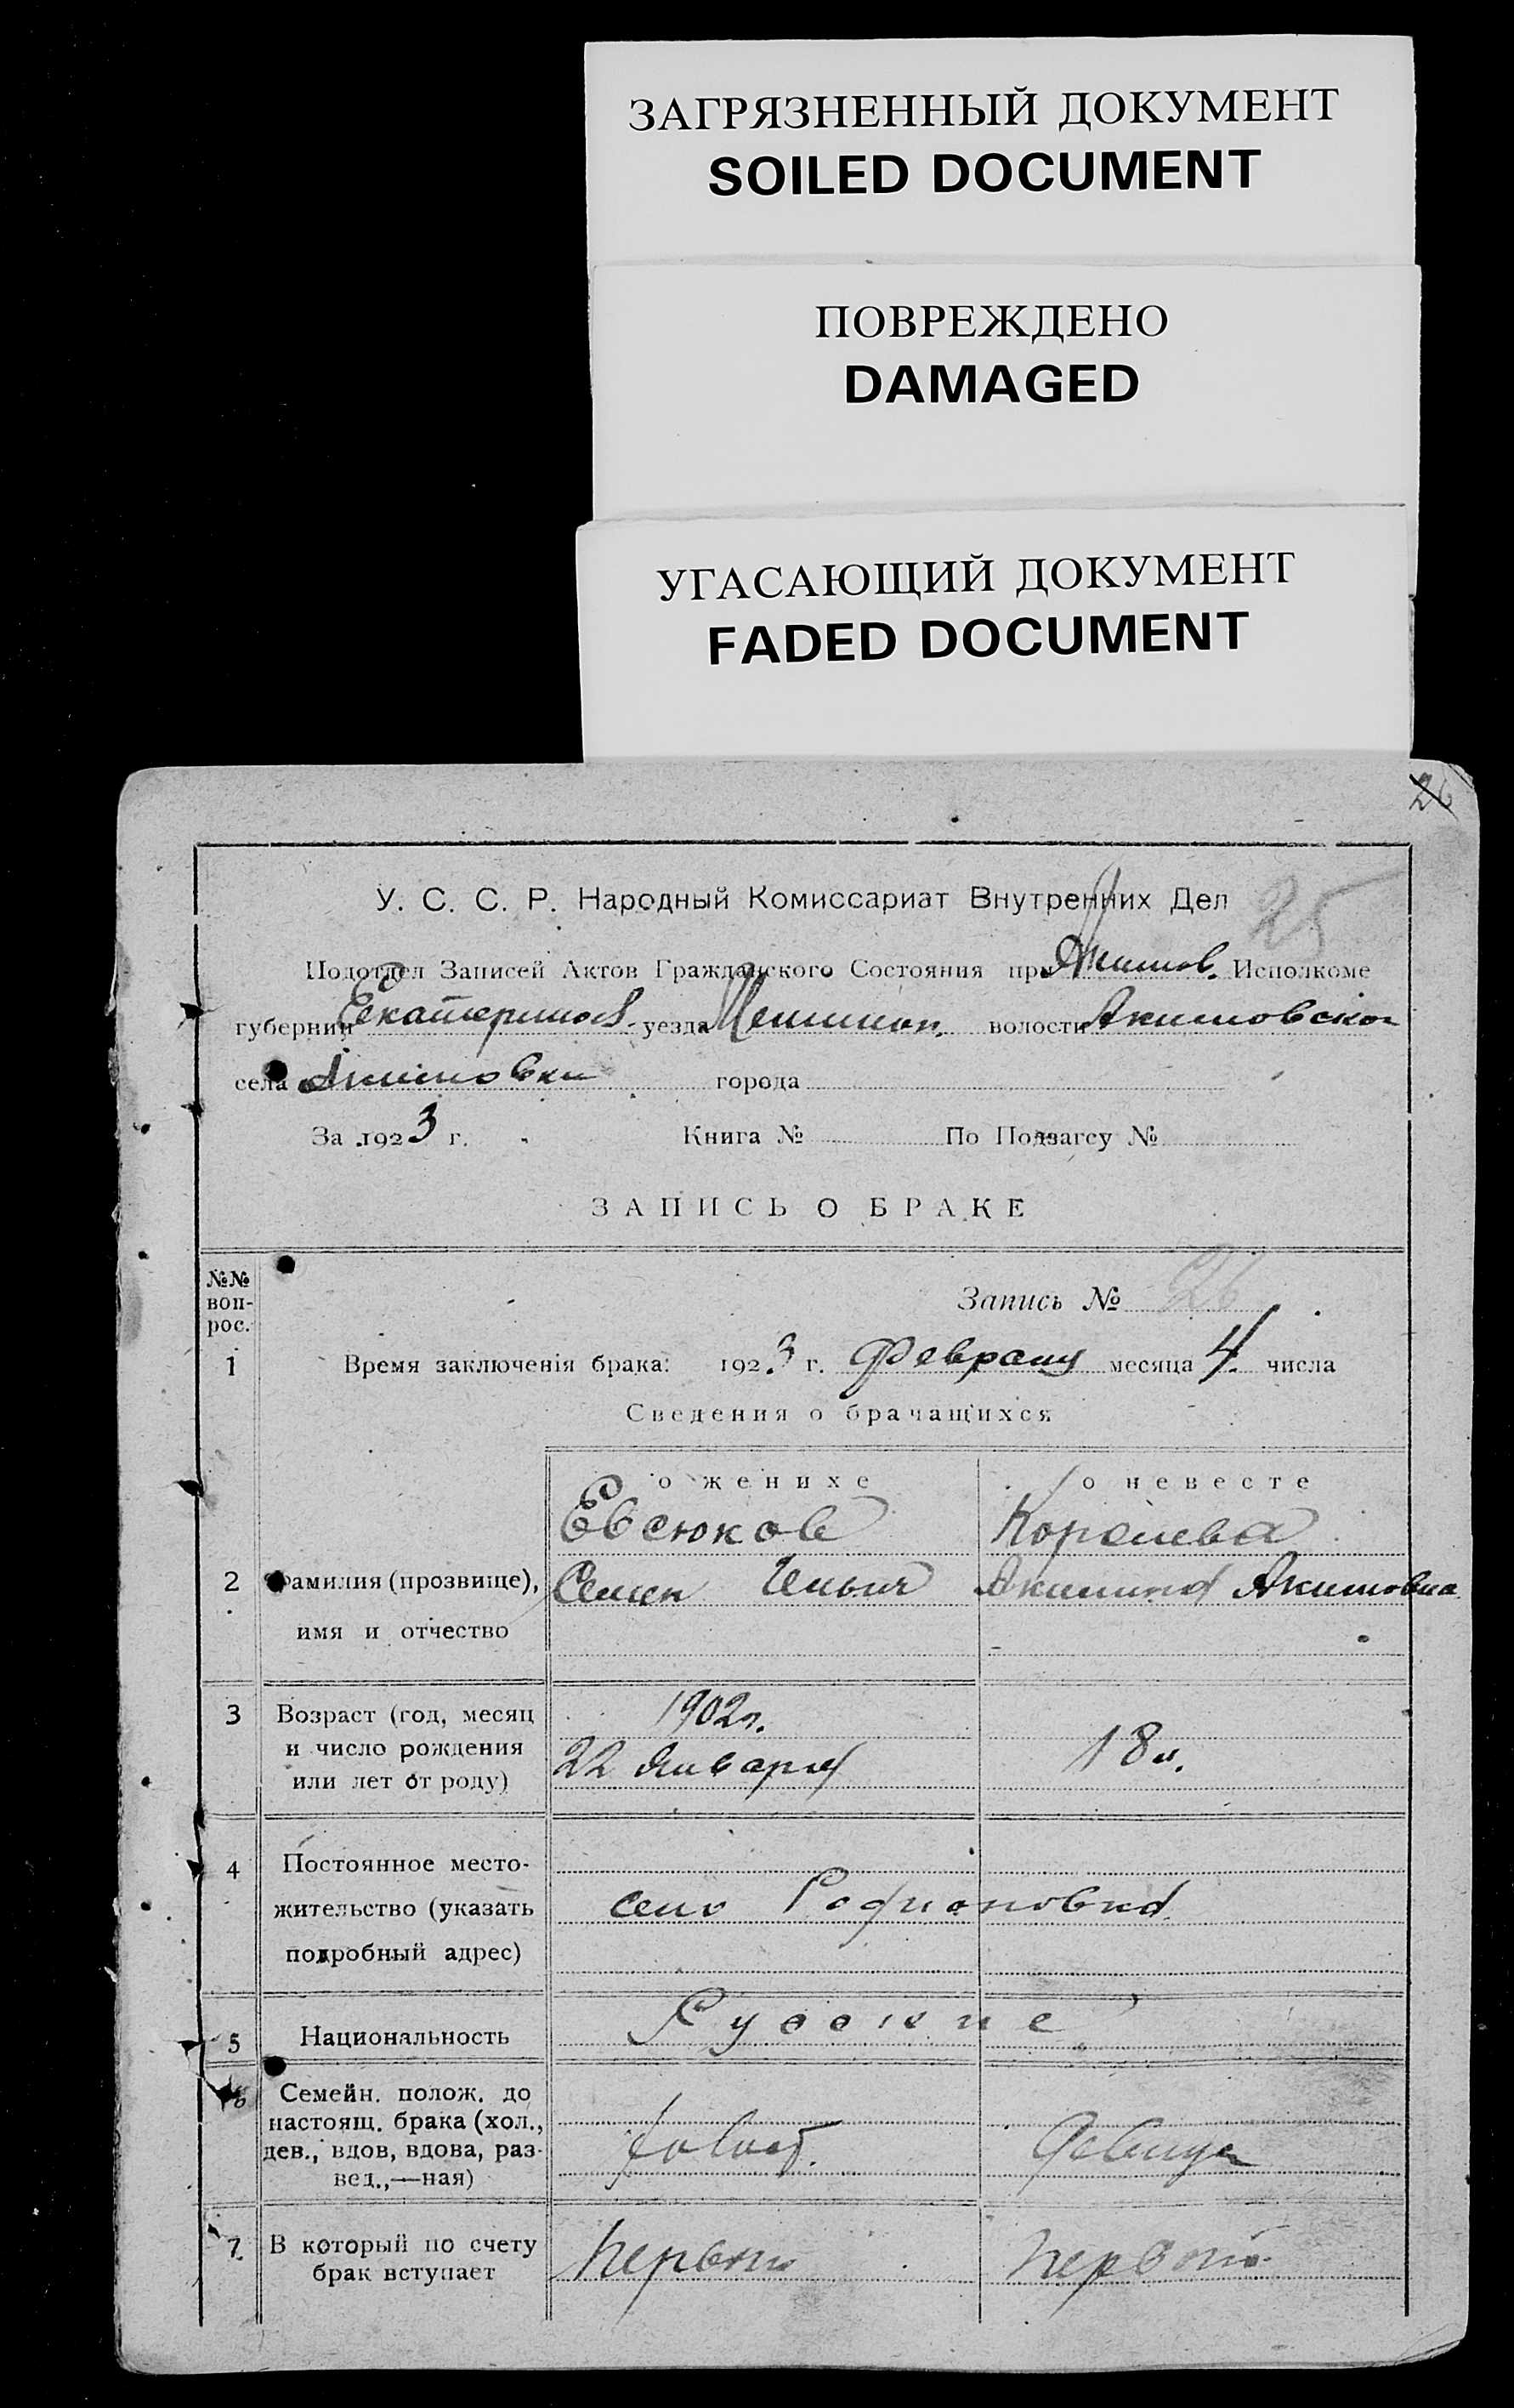 ЗАГРЯЗНЕННЫЙ ДОКУМЕНТ
SOILED DOCUMENT
ПОВРЕЖДЕНО
DAMAGED
УГАСАЮЩИЙ ДОКУМЕНТ
FADED DOCUMENT
26
У. С. С. Р. Народный Комиссариат Внутренних Дел 25
Подотдел Записей Актов Гражданского Состояния при Акимов. Исполкоме
губернии Екатеринос. уезда волости Акимовской
села Акимовки города
За 1923 г. Книга № По Подзагсу №
ЗАПИСЬ О БРАКЕ
№№ воп-рос.
Запись № 26
1 Время заключенія брака: 1923 г. Февраля месяца 4 числа
Сведения о брачащихся
о женихе о невесте
Евсюков Королева
2 Фамилия (прозвище), Семен Ильич Акимовна
имя и отчество
3 Возраст (год, месяц 1902 г.
и число рождения 22 января 18 л.
или лет от роду)
4 Постоянное место-
жительство (указать село Родионовка
подробный адрес)
5 Национальность Русские
6 Семейн. полож. до
настоящ. брака (хол.,
дев., вдов, вдова, раз- холост. девица
вед.,—ная)
7. В который по счету первый первый
брак вступает